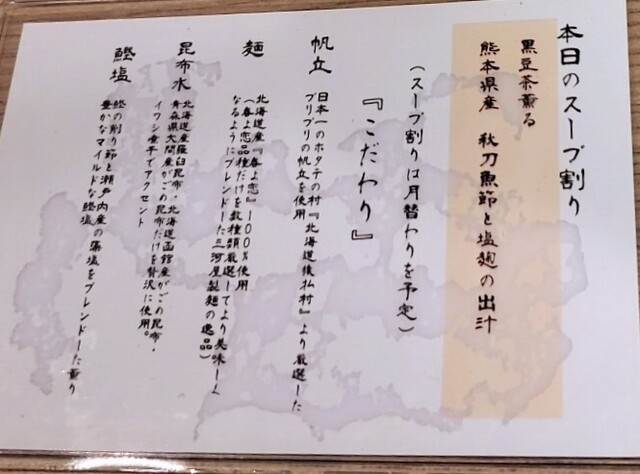 本日のスープ割り
黒豆茶薫る
熊本県産 秋刀魚節と塩麹の出汁
(スープ割りは月替わりを予定)
『こだわり』
帆立 日本一のホタテの村『北海道猿払村』より厳選した
プリプリの帆立を使用
麺 北海道産『春よ恋』100%使用
(春よ恋品種だけを数種類厳選してより美味しく
なるようにブレンドした三河屋製麺の逸品)
昆布水 北海道産羅臼昆布・北海道函館産がごめ昆布・
青森県大間産がごめ昆布だけを贅沢に使用。
イワシ煮干でアクセント
鰹塩 鰹の削り節と瀬戸内産の藻塩をブレンドした薫り
豊かなマイルドな鰹塩